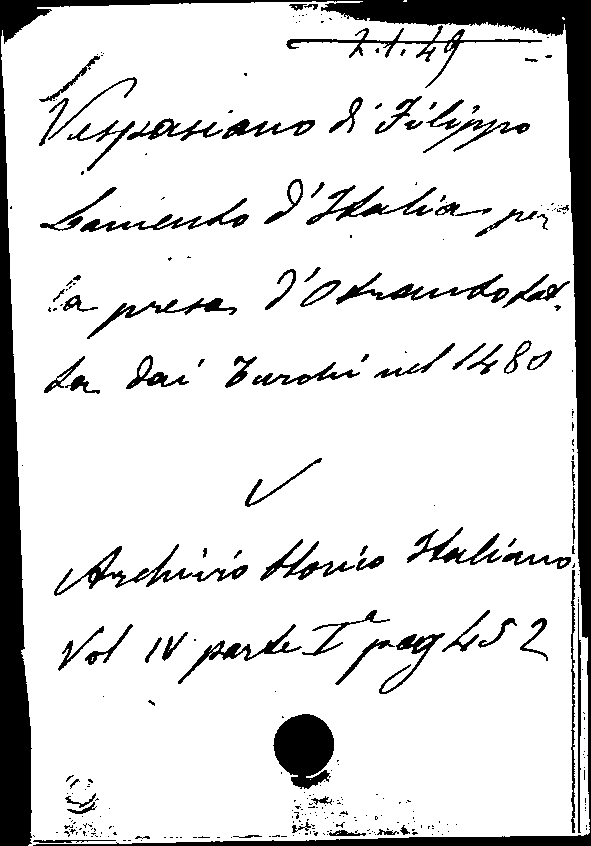 2.1.49
Vespasiano di Filippo
Lamento d'Italia per
la presa d'Otranto fat
ta dai Turchi nel 1480
Archivio Storico Italiano
Vol IV parte Iª pag 452